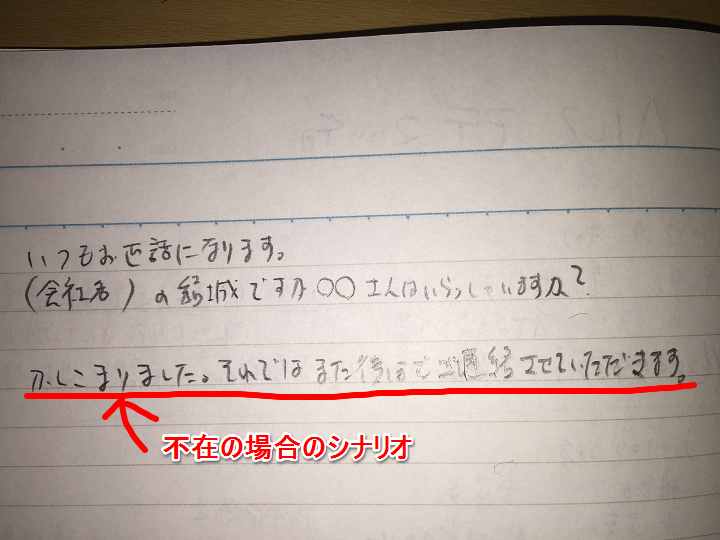 いつもお世話になります。
(会社名)の結城ですが〇〇さんはいらっしゃいますか?
かしこまりました。それではまた後ほどご連絡させていただきます。
不在の場合のシナリオ